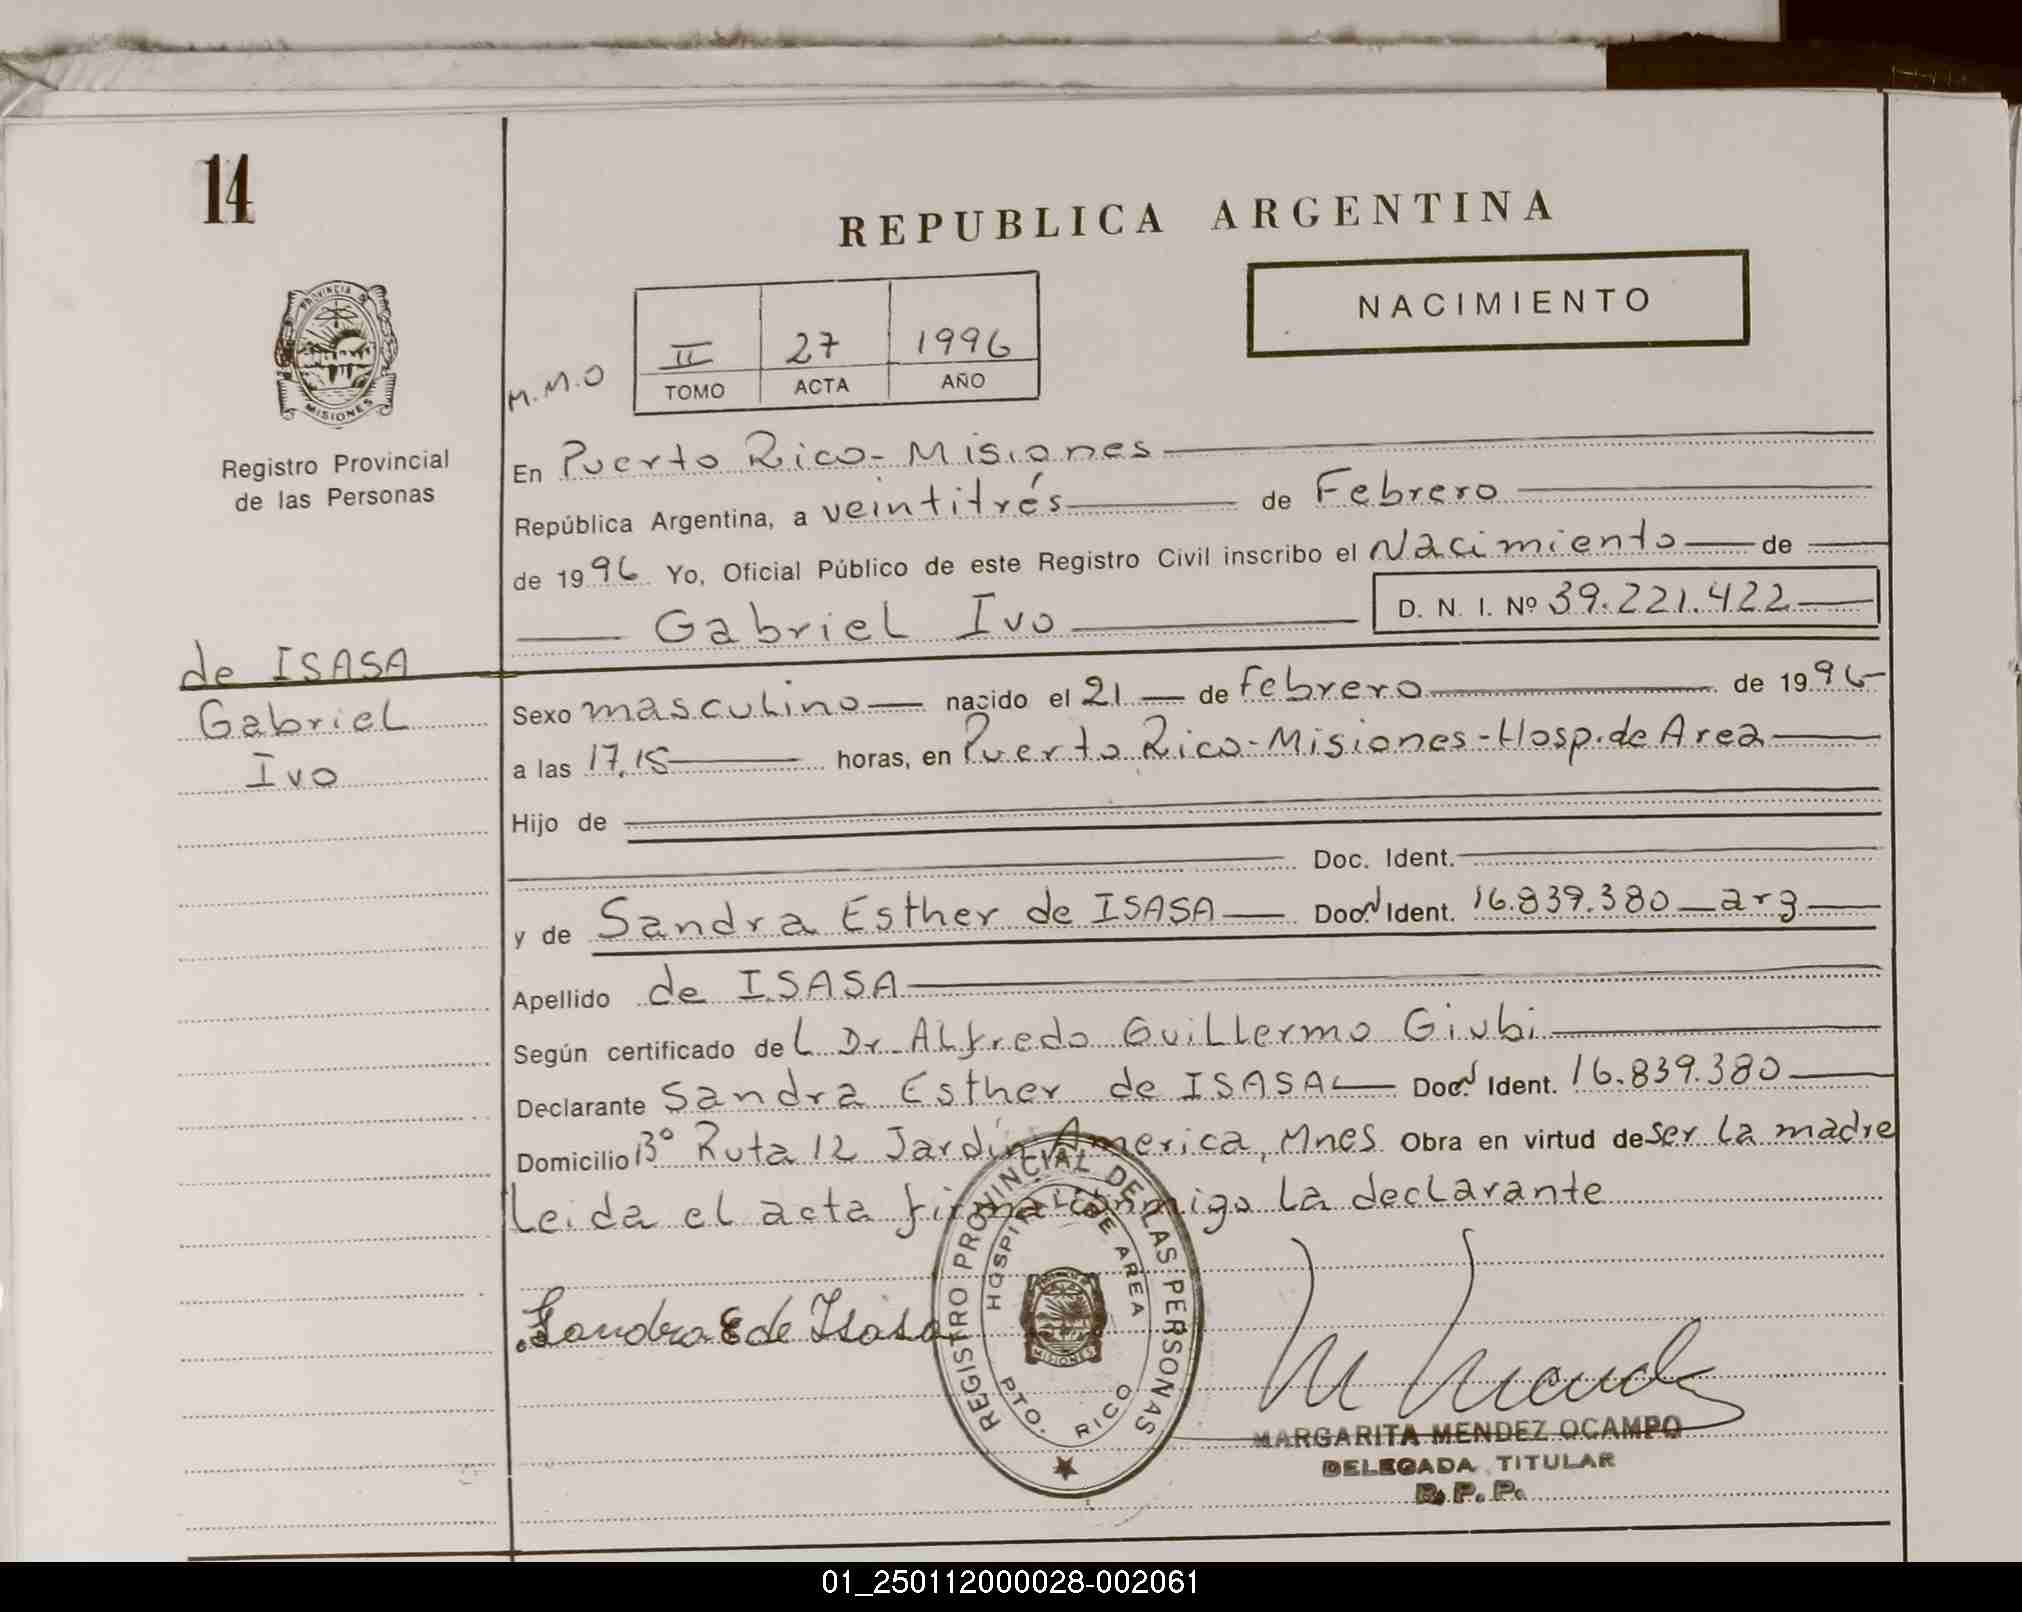 14
REPUBLICA ARGENTINA
NACIMIENTO
PROVINCIA DE
MISIONES
II 27 1996
TOMO ACTA AÑO
M.M.O
Registro Provincial
de las Personas
En Puerto Rico - Misiones
República Argentina, a veintitrés de Febrero
de 1996 Yo, Oficial Público de este Registro Civil inscribo el Nacimiento de
Gabriel Ivo D. N. I. Nº 39.221.422
de ISASA
Gabriel
Ivo
Sexo masculino nacido el 21 de Febrero de 1996
a las 17,15 horas, en Puerto Rico - Misiones - Hosp. de Area
Hijo de
Doc. Ident.
y de Sandra Esther de ISASA Doc. Ident. 16.839.380 arg
Apellido de ISASA
Según certificado del Dr. Alfredo Guillermo Giubi
Declarante Sandra Esther de ISASA Doc. Ident. 16.839.380
Domicilio Bº Ruta 12 Jardín America, Mnes Obra en virtud de ser la madre
Leida el acta firma conmigo la declarante
Sandra E de Isasa
REGISTRO PROVINCIAL DE LAS PERSONAS
HOSPITAL DE AREA
MISIONES
PTO. RICO
MARGARITA MENDEZ OCAMPO
DELEGADA TITULAR
R. P. P.
01_250112000028-002061